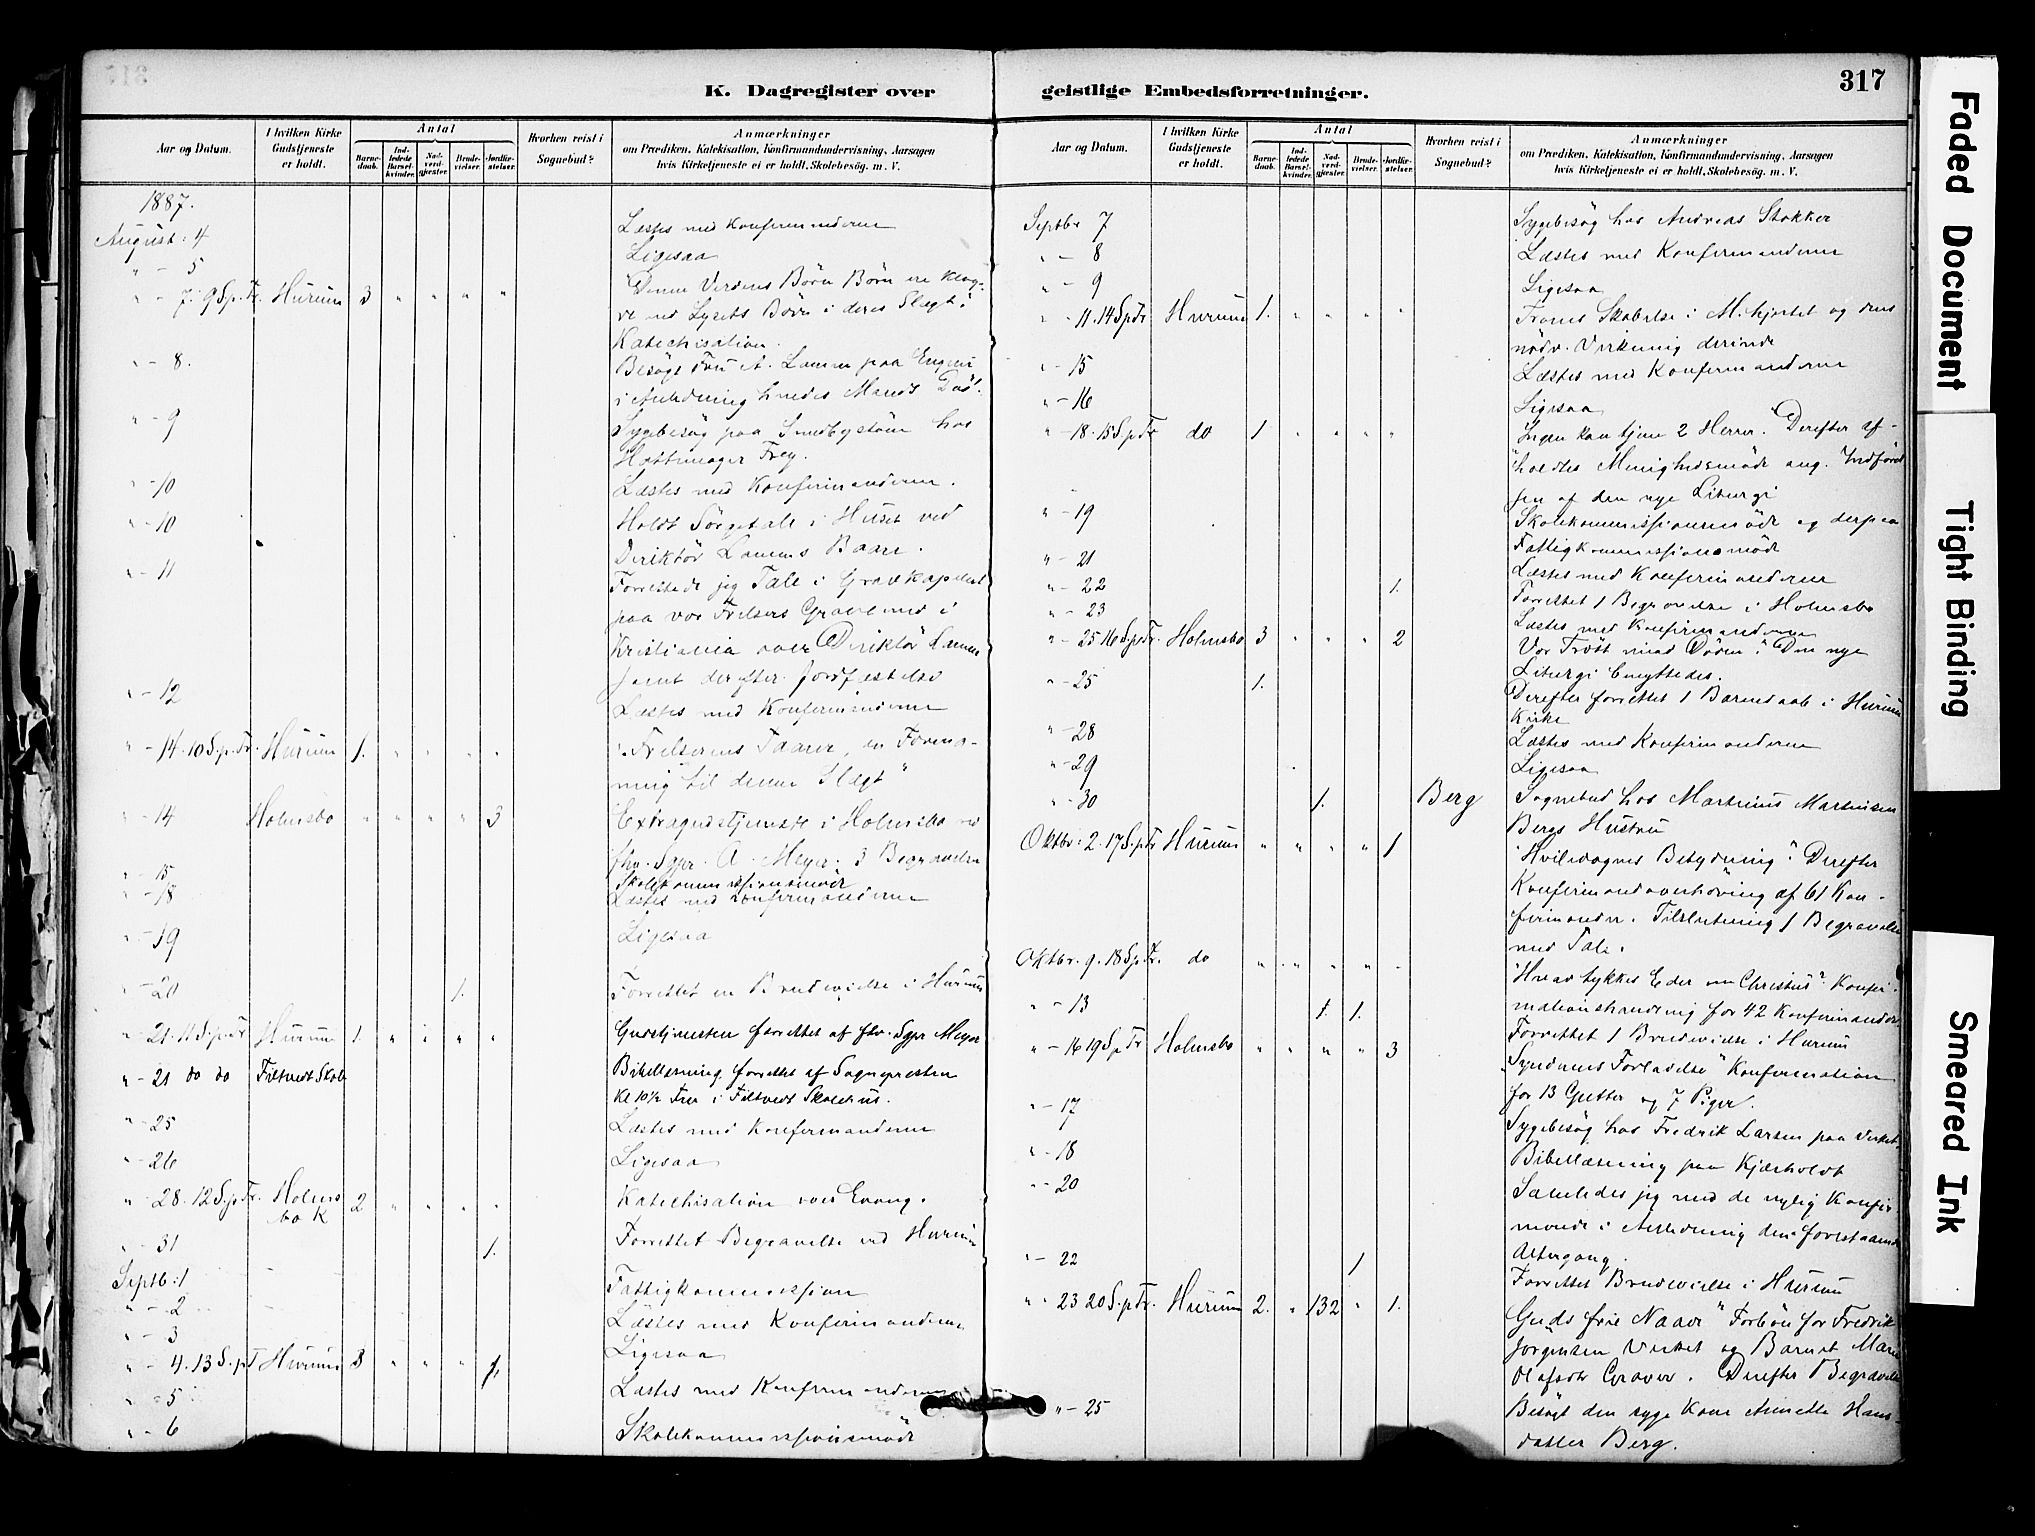 317
K. Dagregister over
geistlige Embedsforretninger.
Aar og Datum.
I hvilken Kirke Gudstjeneste er holdt.
Antal
Barne-daab.
Ind-ledede Barsel-kvinder.
Nad-verd-gjester.
Brude-vielser.
Jordfæ-stelser.
Hvorhen reist i Sognebud?
Anmærkninger
om Prædiken, Katekisation, Konfirmandundervisning, Aarsagen
hvis Kirketjeneste ei er holdt, Skolebesög. m. V.
1887.
August: 4 Læstes med Konfirmanderne
" - 5 Ligesaa
" - 7. 9 S.p.Tr. Hurum 3 " " " " Denne Verdens Börn ere klog-
re end Lysets Börn i deres Slægt.
Katechisation.
" - 8. Besögt Fru A. Lamm paa Engene
i Anledning hendes Mands Död.
" - 9 Sygebesög paa hos
Hattemager Frey.
" - 10 Læstes med Konfirmanderne.
" - 10 Holdt Sörgetale i Huset ved
Direktör Lamms Baare.
" - 11 Forrettede jeg Tale i Gravkapellet
paa vor Frelsers Gravlund i
Kristiania over Direktör Lamm
samt derefter Jordfæstelse
" - 12 Læstes med Konfirmanderne
" - 14. 10 S.p.Tr. Hurum 1. " " " " "Frelserens Taarer, en Forma-
ning til denne Slægt"
" - 14 Holmsbo " " " " 3 Extragudstjeneste i Holmsbo ved
fhv. Sgpr. A. Meyer. 3 Begravelser
" - 15 Skolekommissionsmöde
" - 18 Læstes med Konfirmanderne
" - 19 Ligesaa
" - 20 1. Forrettet en Brudevielse i Hurum
" - 21. 11 S.p.Tr Hurum 1. " " " " Gudstjenesten forrettet af fhv. Sgpr Meyer
" - 21 do do Filtvedt Skole Bibellæsning forrettet af Sognepresten
Kl 10½ Frm i Filtvedt Skolehus.
" - 25 Læstes med Konfirmanderne
" - 26 Ligesaa
" - 28. 12 S.p.Tr. Holms-
bo K 2 " " " " Katechisation over Evang.
" - 31 1. Forrettet Begravelse ved Hurum
Septb: 1 Fattigkommission
" - 2 Læstes med Konfirmanderne
" - 3 Ligesaa
" - 4. 13 S.pT Hurum 3 " " " 1.
" - 5 Læstes med Konfirmanderne
" - 6 Skolekommissionsmöde
Aar og Datum.
I hvilken Kirke Gudstjeneste er holdt.
Antal
Barne-daab.
Ind-ledede Barsel-kvinder.
Nad-verd-gjester.
Brude-vielser.
Jordfæ-stelser.
Hvorhen reist i Sognebud?
Anmærkninger
om Prædiken, Katekisation, Konfirmandundervisning, Aarsagen
hvis Kirketjeneste ei er holdt, Skolebesög. m. V.
Septbr 7 Sygebesög hos Andreas Stokker
" - 8 Læstes med Konfirmanderne
" - 9 Ligesaa
" - 11. 14 SpTr Hurum 1. " " " " Troens Skabelse i M.hjertet og dens
nödv. Virkning derinde
" - 15 Læstes med Konfirmanderne
" - 16 Ligesaa
" - 18. 15 S.p.Tr do 1 " " " " "Ingen kan tjene 2 Herrer." Derefter af-
holdtes Menighedsmöde ang. Indförel-
sen af den nye Liturgi
" - 19 Skolekommissionsmöde og derpaa
Fattigkommissionsmöde
" - 21 Læstes med Konfirmanderne
" - 22 1. Forrettet 1 Begravelse i Holmsbo
" - 23 Læstes med Konfirmanderne
" - 25 16 S.p.Tr. Holmsbo 3 " " " 2 "Vor Tröst mod Döden." Den nye
Liturgi benyttedes.
" - 25 1. Derefter forrettet 1 Barnedaab i Hurum
Kirke
" - 28 Læstes med Konfirmanderne
" - 29 Ligesaa
" - 30 1. Berg Sognebud hos Martinius Martinsen
Bergs Hustru
Oktbr: 2. 17 S.pTr Hurum " " " " 1 "Hviledagens Betydning." Derefter
Konfirmandoverhöring af 61 Kon-
firmander. Tilslutning 1 Begravelse
med Tale.
Oktbr. 9. 18 S.p.Tr. do " " " " " "Hvad tykkes Eder om Christus" Konfir-
mationshandling for 42 Konfirmander
" - 13 1. 1. Forrettet 1 Brudevielse i Hurum
" - 16 19 S.p.Tr Holmsbo " " " " 3 "Syndernes Forladelse" Konfirmation
for 13 Gutter og 7 Piger.
" - 17 Sygebesög hos Fredrik Larsen paa Verket.
" - 18 Bibellæsning paa Kjærholdt
" - 20 Samledes jeg med de nylig Konfir-
merede i Anledning den forestaaende
Altergang.
" - 22 1 Forrettet Brudevielse i Hurum
" - 23 20 S.p.Tr. Hurum 2. " 132 " 1. Guds frie Naade" Forbön for Fredrik
Jörgensen Verket og Barnet Marie
Olafsdtr Graver. Derefter Begravelse
" - 25 Besögt den syge Kone Annette Hans-
datter Berg.
Faded Document
Tight Binding
Smeared Ink